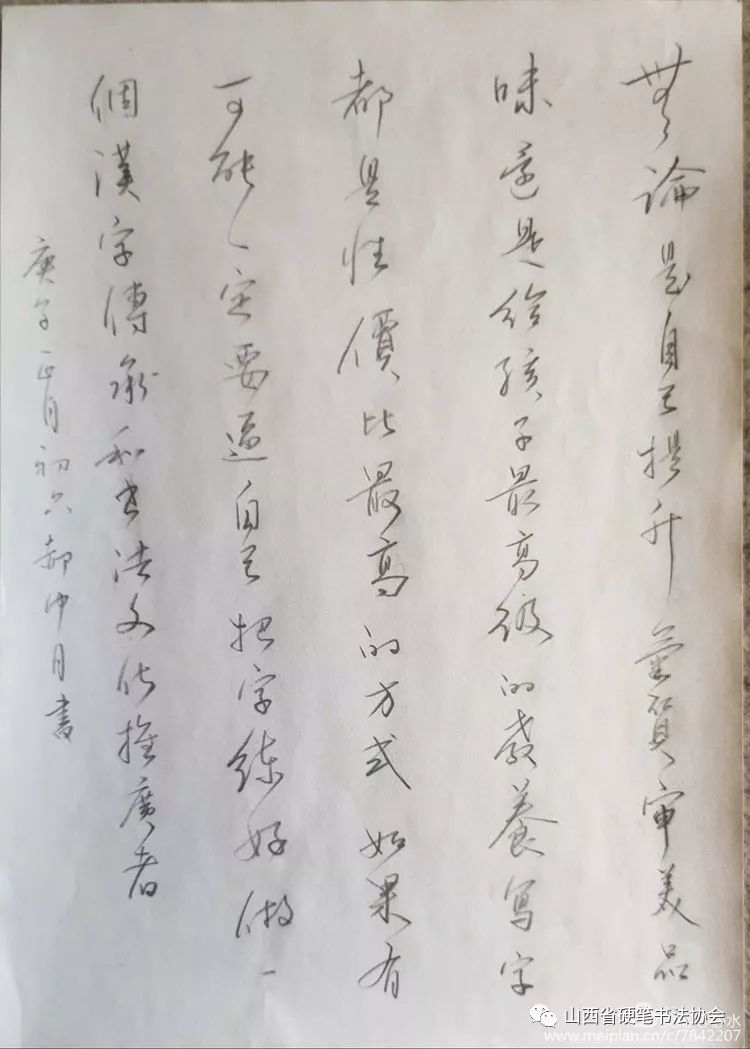 無論是自己提升氣質審美品
味還是給孩子最高級的教養寫字
都是性價比最高的方式如果有
可能一定要逼自己把字練好做一
個漢字傳承和书法文化推廣者
庚子正月初六郝中月書
山西省硬笔书法协会
www.meipian.cn/c/7842207